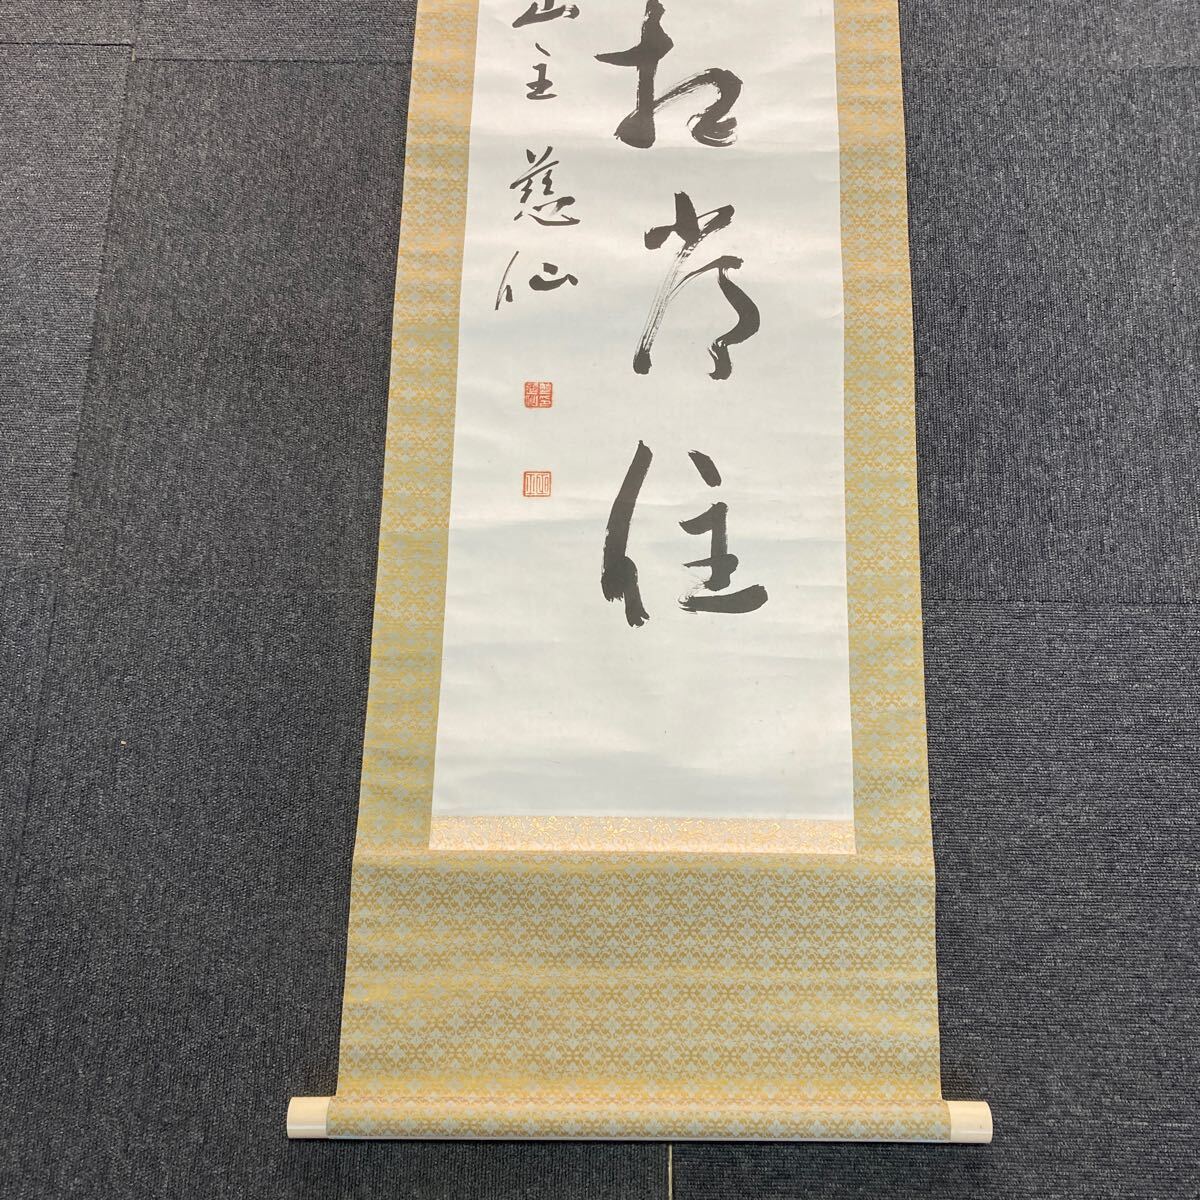 相常住
山主慈仙